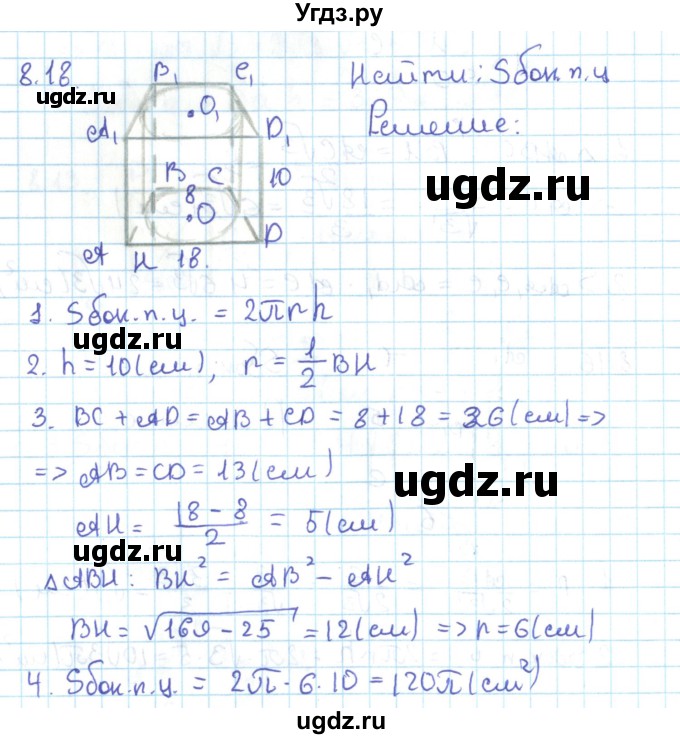 Угдз.ру
8.18
ugdz.ru
B₁ C₁
O₁
A₁ D₁
B C 10
8
O
A H 18. D
Найти: Sбок.п.ц
Решение:
ugdz.ru
1. Sбок.п.ц. = 2πrh
ugdz.ru
2. h = 10(см), r = 1/2 BH
3. BC + AD = AB + CD = 8 + 18 = 26(см) =>
=> AB = CD = 13(см)
ugdz.ru
AH = (18 - 8)/2 = 5(см)
ugdz.ru
△ABH: BH² = AB² - AH²
BH = √(169 - 25) = 12(см) => r = 6(см)
ugdz.ru
4. Sбок.п.ц. = 2π · 6 · 10 = 120π(см²)
ugdz.ru